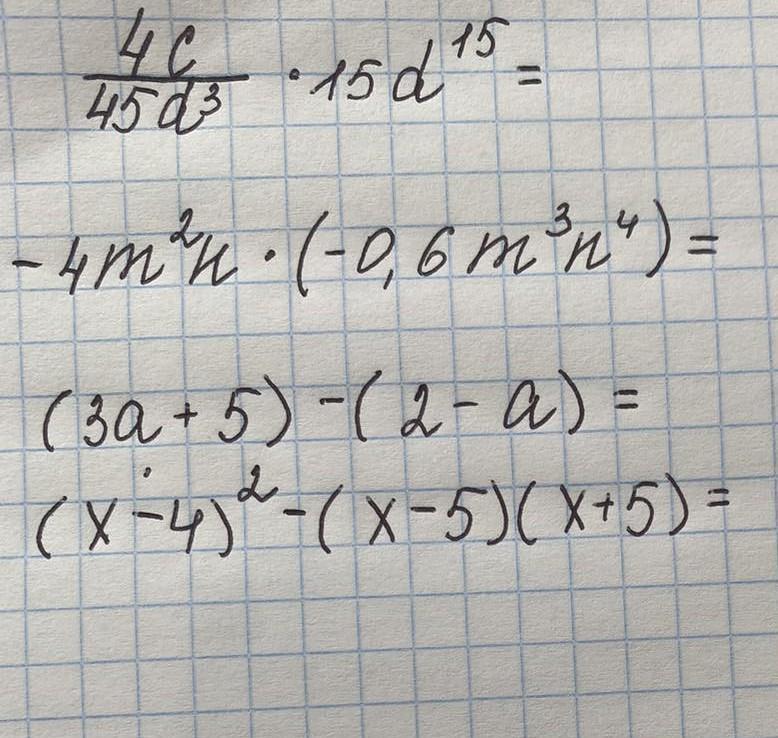 4c/45d³ · 15d¹⁵ =
-4m²n · (-0,6m³n⁴) =
(3a + 5) - (2 - a) =
(x - 4)² - (x - 5)(x + 5) =